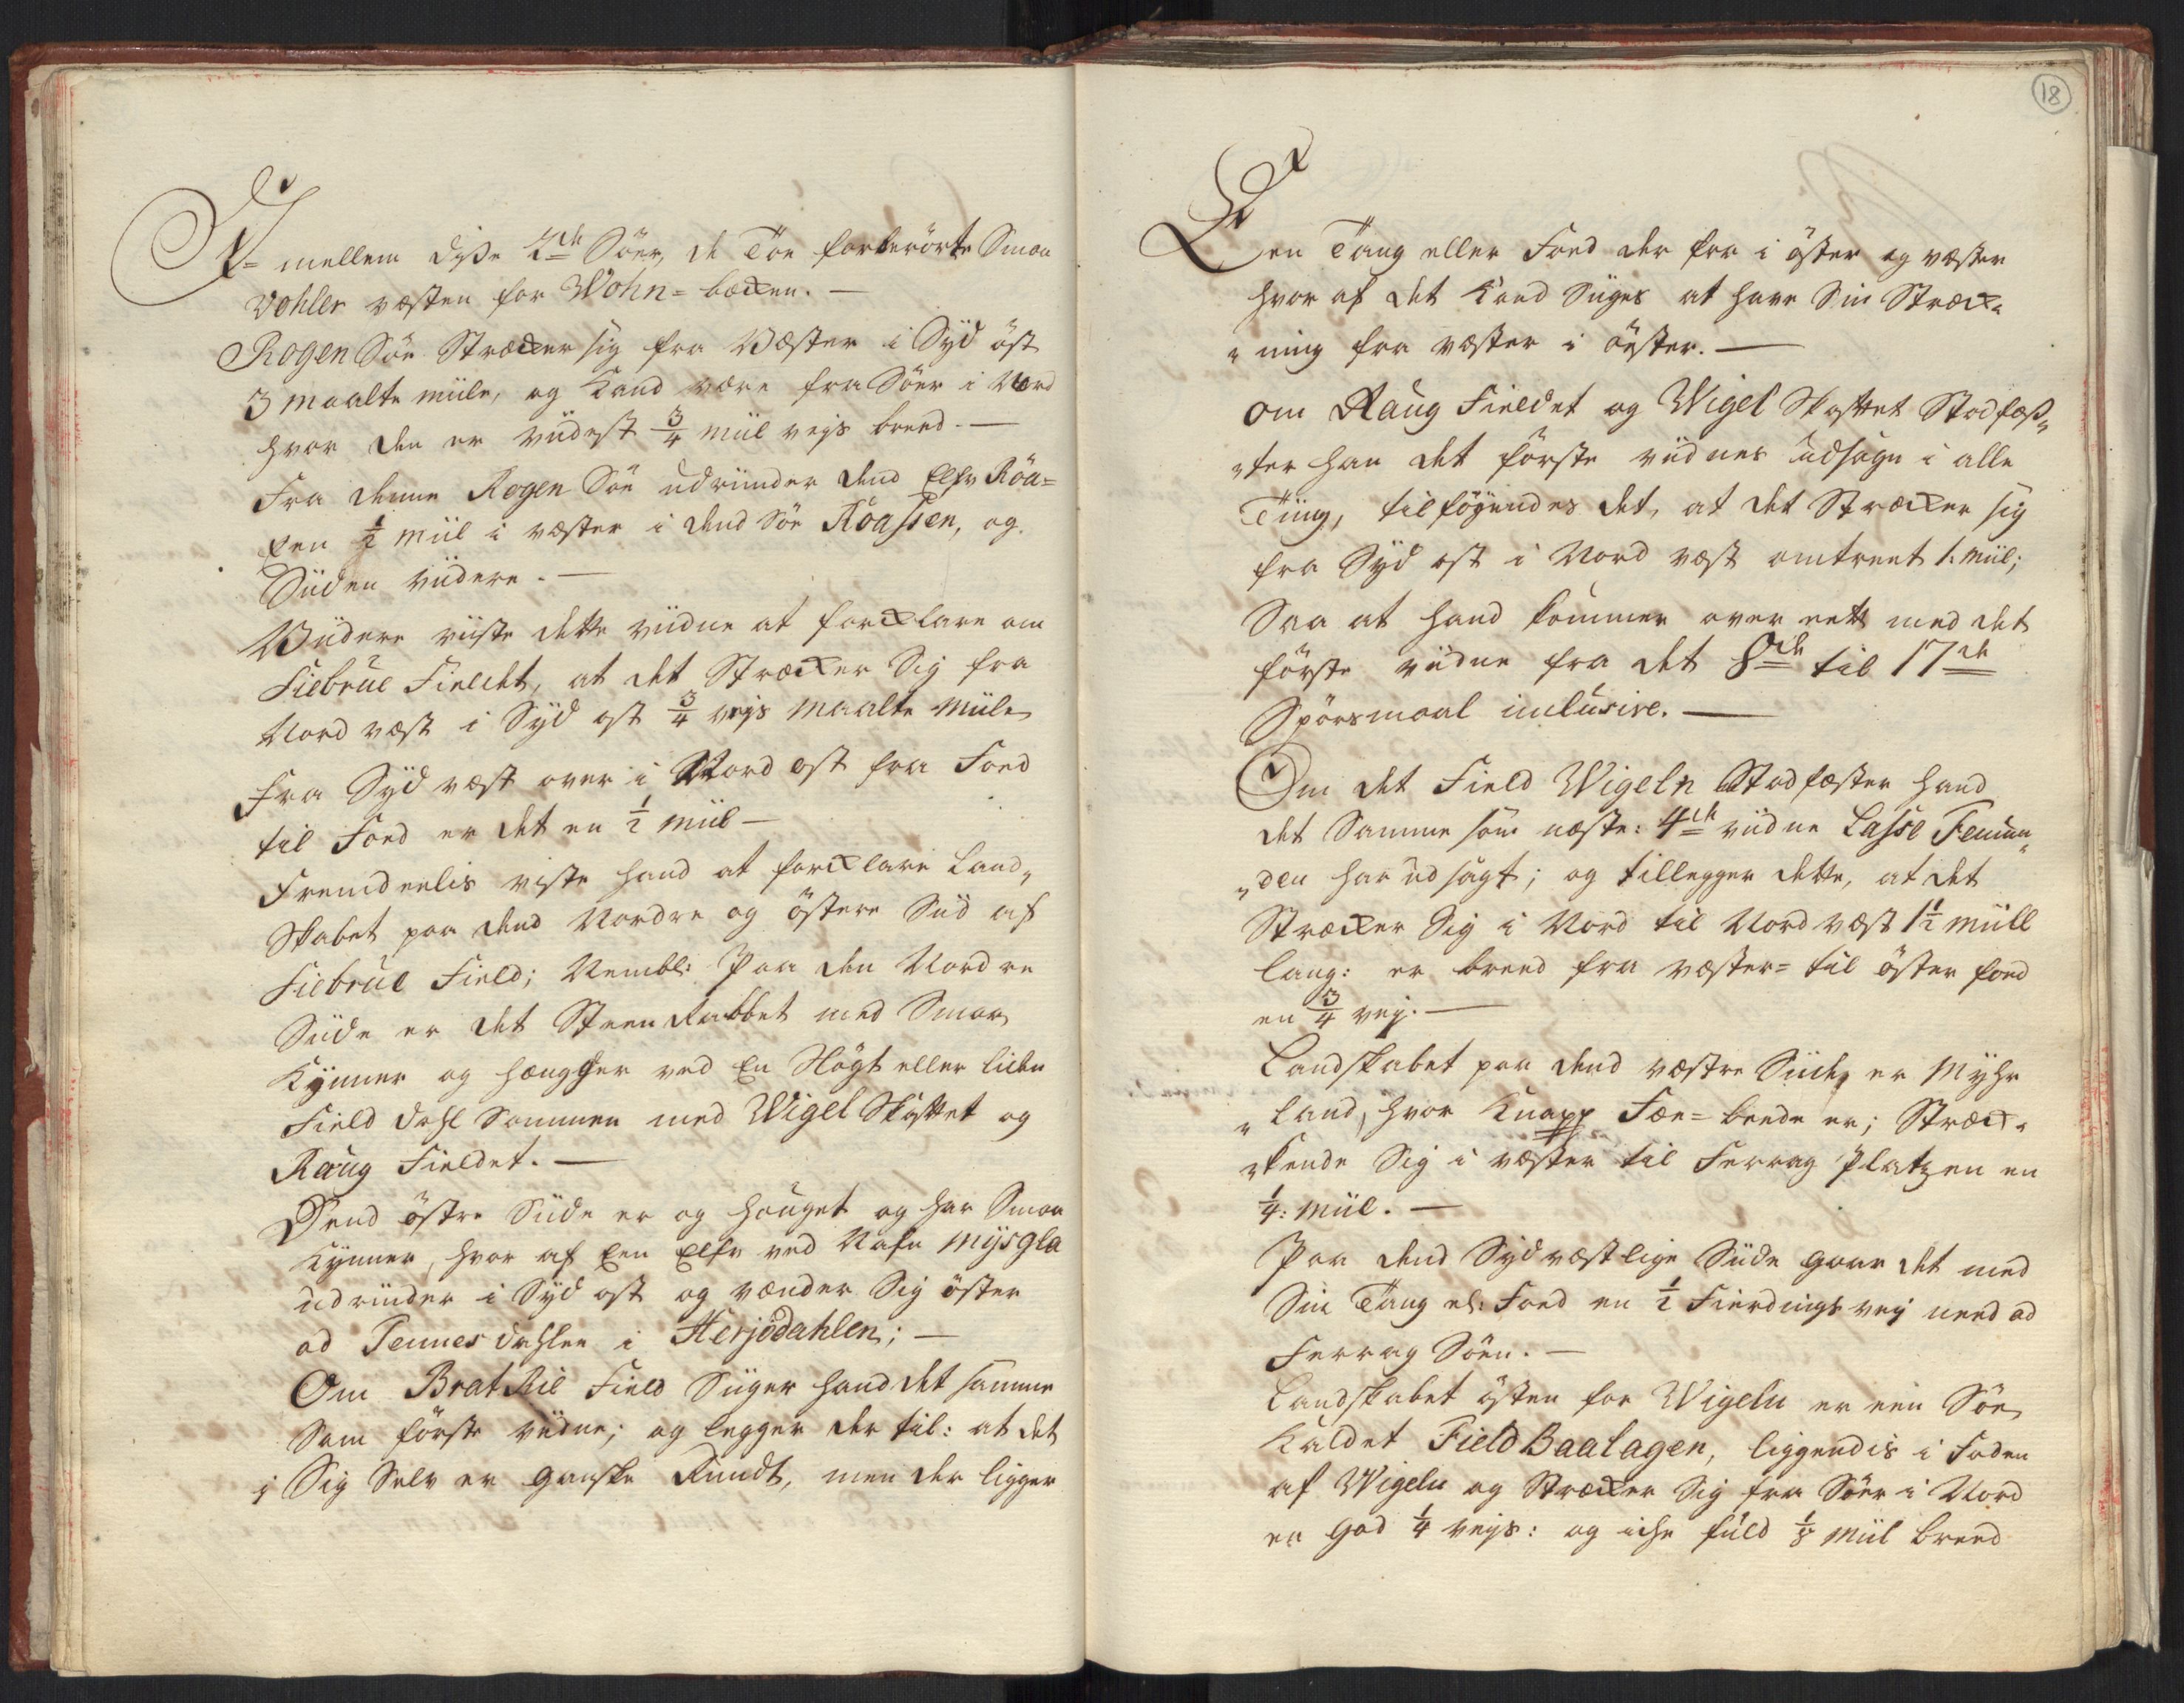 I- mellem diße 2de Söer, de Töe forberörte Smaa
Vohler væsten for Wohn-bæcken. —
Rogen Söe Strecker sig fra Væster i Syd öst
3 maalte miile, og Kand være fra Söer i Nord
hvor den er viidest 3/4 miil vejs breed. —
Fra denne Rogen Söe udrinder dend Elfv Röa-
en 1/2 miil i væster i dend Söe Röassen, og
Siiden viidere. —
Viidere viiste dette viidne at forclare om
Siebrue Fieldet, at det Strecker Sig fra
Nord væst i Syd ost 3/4 vejs maalte miile
Fra Syd væst over i Nord ost fra Foed
til Foed er det en 1/2 miil —
Fremdeelis viste hand at forclare Land„
Skabet paa dend Nordre og östere Siid af
Siebrue Field; Nembl: Paa den Nordre
Siide er det Steen Rabbet med Smaa
Kynner og hængher ved En Högt eller liden
Field dahl Sammen med Wigel Skaftet og
Raug Fieldet. —
Dend östre Siide er og hauget og har Smaa
Kynner, hvor af Een Elfv ved Nafn Mysgla
udrinder i Syd ost og vender Sig öster
ad Tennes dahlen i Herjedahlen; —
Om Brat Riie Field Siiger hand det samme
Som förste viidne; og legger der til: at det
i Sig Selv er ganske Rundt, men der ligger
18
Een Tang eller Foed der fra i öster og væster
hvor af det Kand Siiges at have Sin Streck„
„ning fra væster i öster. —
om Raug Fieldet og Wigel Skaftet Stadfæs„
„ter han det förste viidnes udsagn i alle
Tiing, tilföyendes det, at det Strecker sig
fra Syd ost i Nord væst omtrent 1. miil;
Saa at hand kommer over eett med det
förste viidne fra det 8de til 17de
Spörsmaal inclusive. —
Om det Field Wigeln Stadfæster hand
det Samme som næste: 4de viidne Lasse Femun„
„den har udsagt; og tillegger dette, at det
Strecker Sig i Nord til Nord væst 1 1/2 miill
lang: er breed fra væster- til öster foed
en 3/4 vej. —
Landskabet paa dend væstre Siide er Myhr
„land, hvor Knapp Fæe-beede er; Streck„
„kende Sig i væster til Ferrag Platzen en
1/4: miil. —
Paa dend Sydvæstlige Siide gaar det med
Sin Tang el: Foed en 1/2 Fierdings vej need ad
Ferrag Söen. —
Landskabet östen for Wigeln er een Söe
Kaldet Field Baalagen, liggendis i Foden
af Wigeln og Strecker Sig fra Söer i Nord
en god 1/4 vejs: og iche fuld 1/8 miil breed